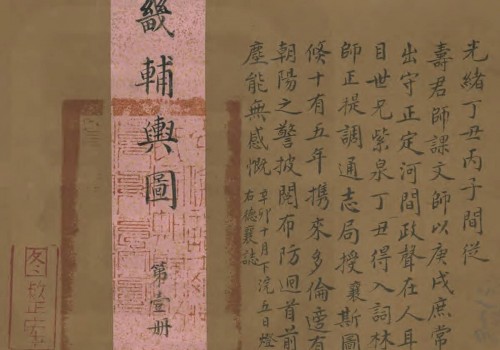 光緒丁丑丙子間從
壽君師課文師以庚戌庶常
出守正定河間政聲在人耳
目世兄紫泉丁丑得入詞林
師正提調通志局授襄斯圖
倏十有五年攜來多倫遭有
朝陽之警披閱布防迴首前
塵能無感慨
辛卯十月下浣五日燈
右德襄誌
畿輔輿圖
第壹册